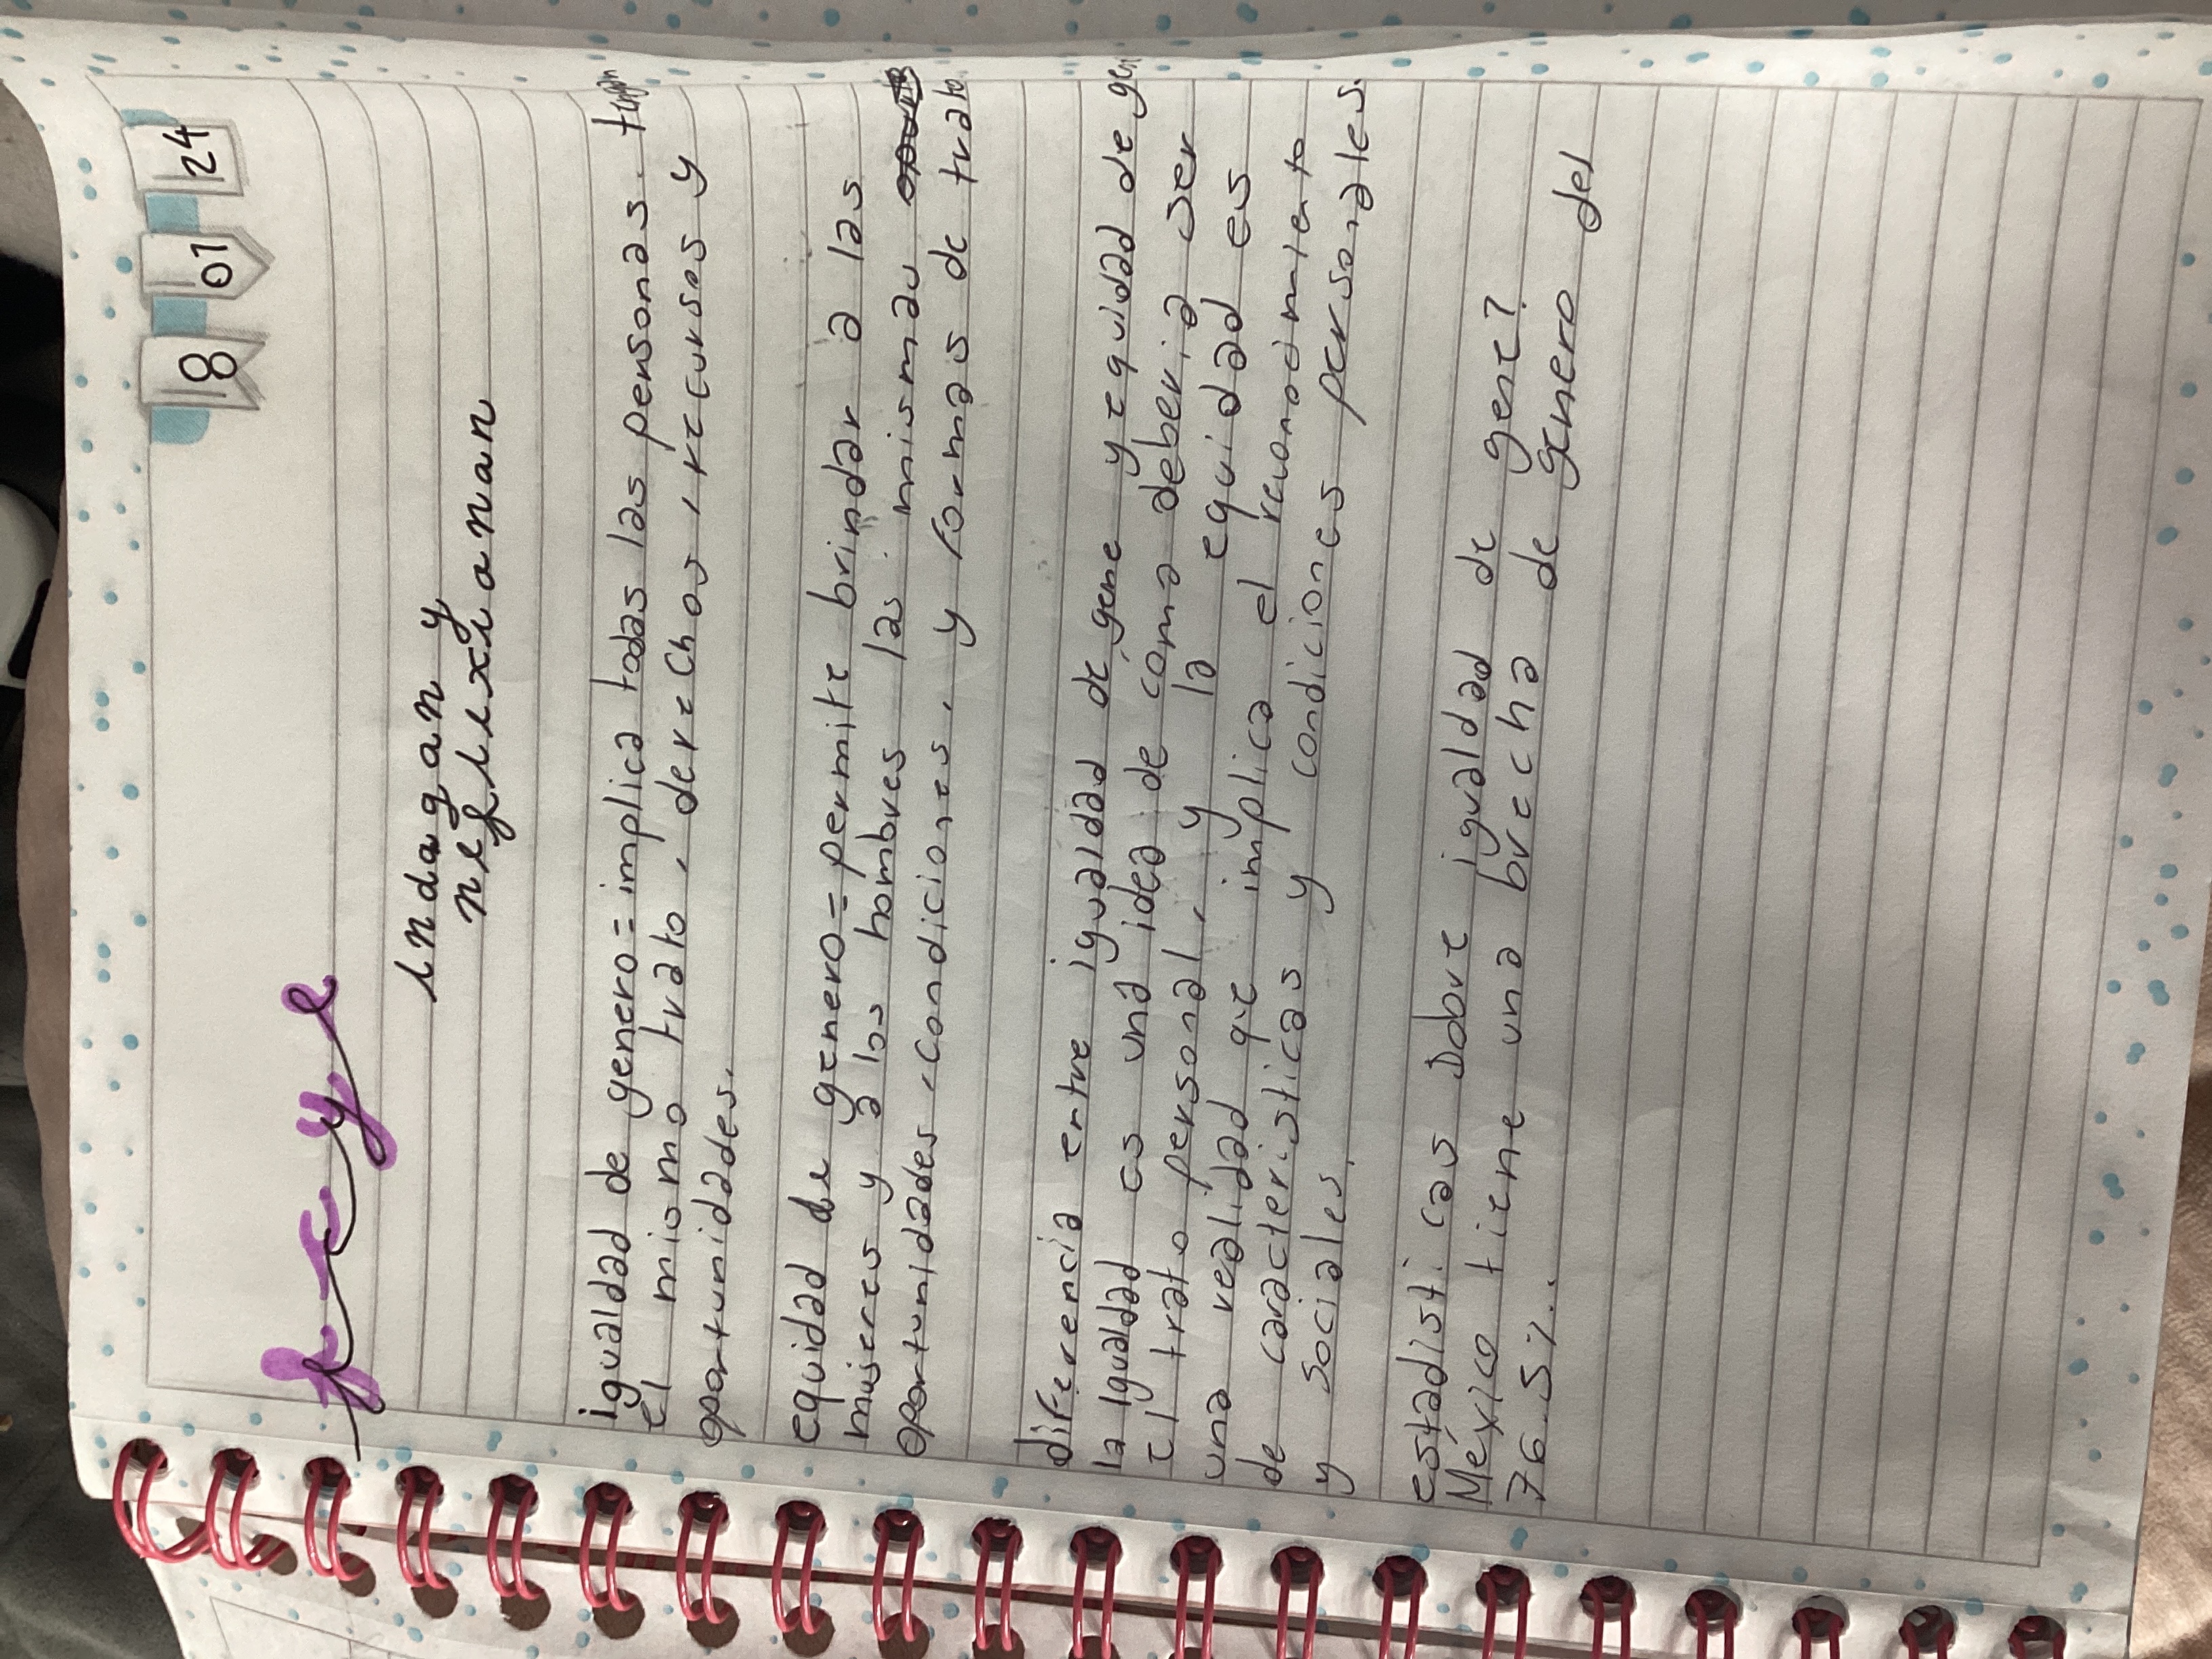 8 01 24
f c y e
indagan y
reflexionan
igualdad de genero = implica todas las personas.
el mismo trato, derechos, recursos y
oportunidades.
equidad de genero = permite brindar a las
mujeres y a los hombres las mismas
oportunidades, condiciones, y formas de trato
diferencia entre igualdad de gene y equidad de gen
la igualdad es una idea de como deberia ser
el trato personal, y la equidad es
una realidad que implica el reconocimiento
de caracteristicas y condiciones personales.
y sociales.
estadisticas sobre igualdad de gene?
México tiene una brecha de genero del
76.5%..